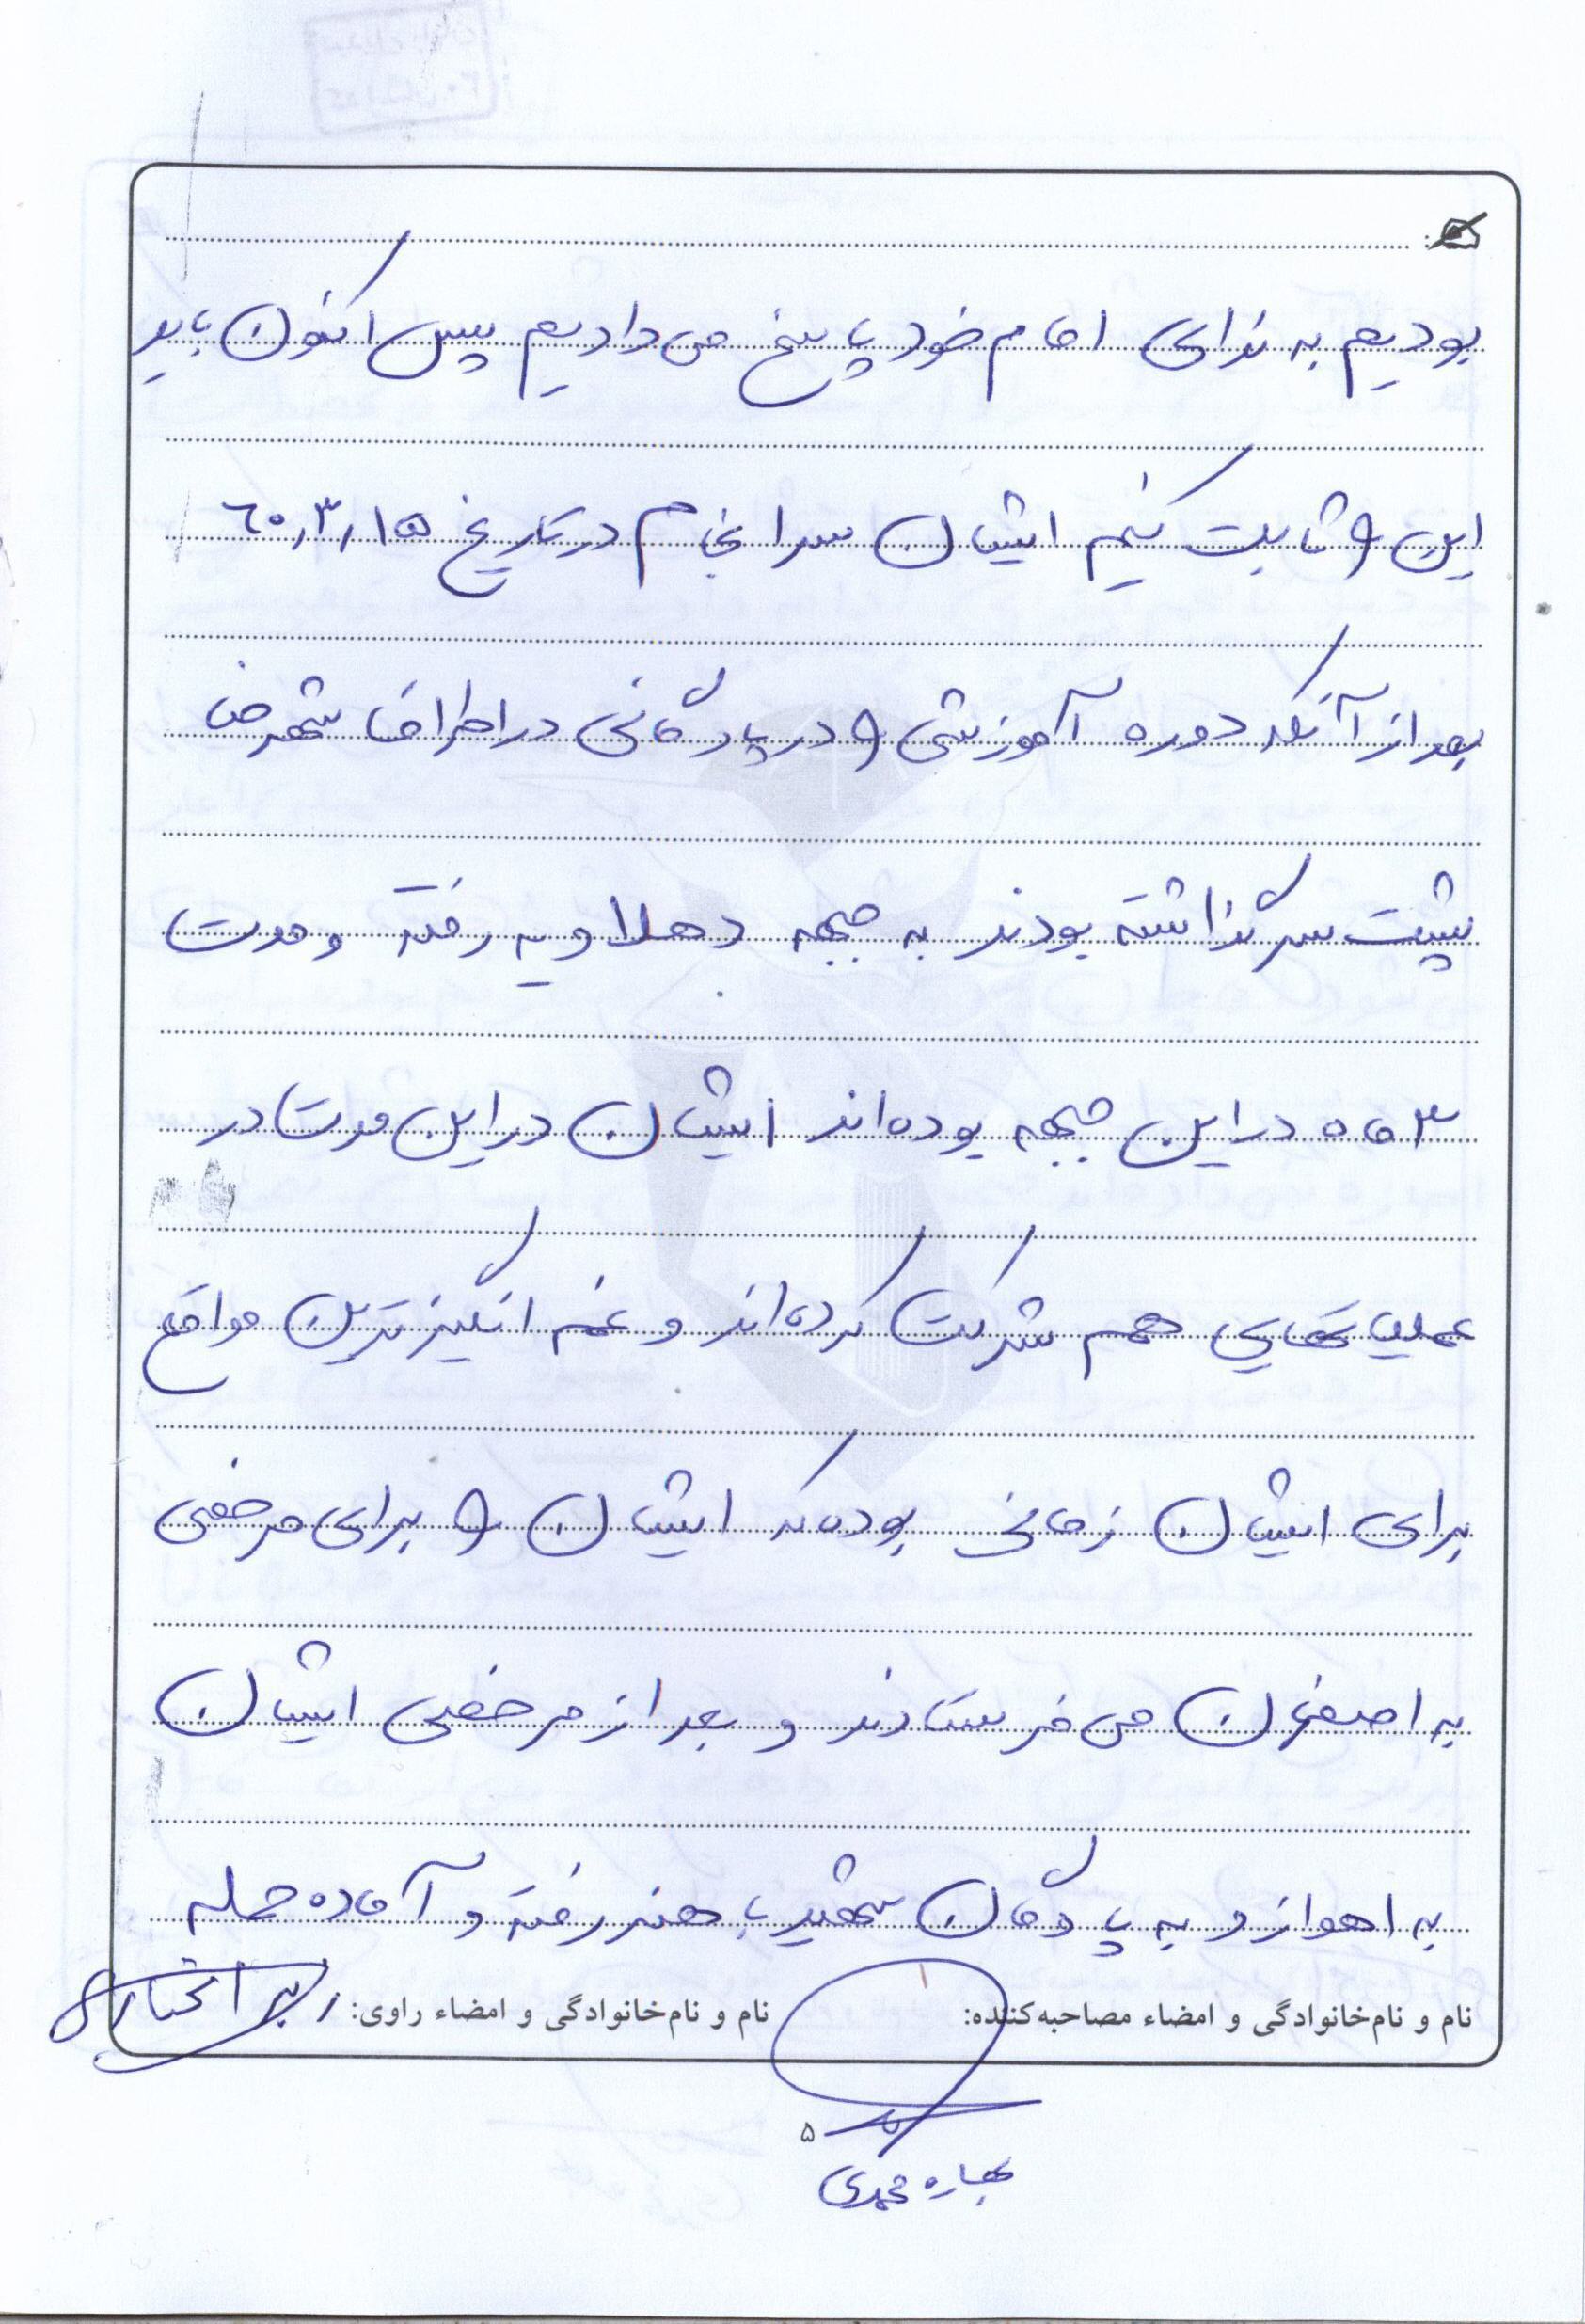 بودیم به ندای امام خود پاسخ می دادیم پس اکنون باید
این را ثابت کنیم ایشان سرانجام در تاریخ ۶۰٫۳٫۱۵
بعد از آنکه دوره آموزشی را در پادگانی در اطراف شهرضا
پشت سر گذاشته بودند به جبهه دهلاویه رفته و مدت
۳ ماه در این جبهه بوده اند ایشان در این مدت در
عملیاتهایی هم شرکت کرده اند و غم انگیزترین مواقع
برای ایشان زمانی بوده که ایشان را برای مرخصی
به اصفهان می فرستادند و بعد از مرخصی ایشان
به اهواز و به پادگان شهید باهنر رفته و آماده حمله
نام و نام‌خانوادگی و امضاء مصاحبه‌کننده: نام و نام‌خانوادگی و امضاء راوی:
۵
بهاره محمدی